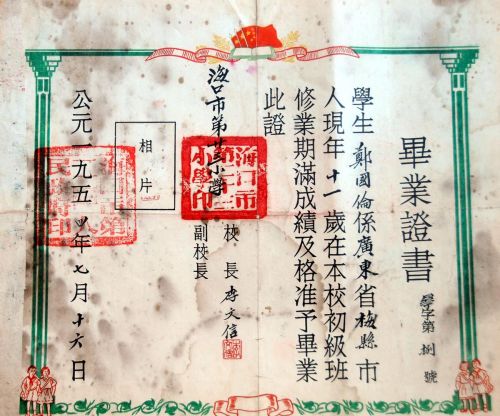 畢業證書
學字第捌號
學生鄭國倫係廣東省梅縣市
人現年十一歲在本校初級班
修業期滿成績及格准予畢業
此證
海口市第廿三小學
校長李文信
副校長
相片
公元一九五四年七月十六日